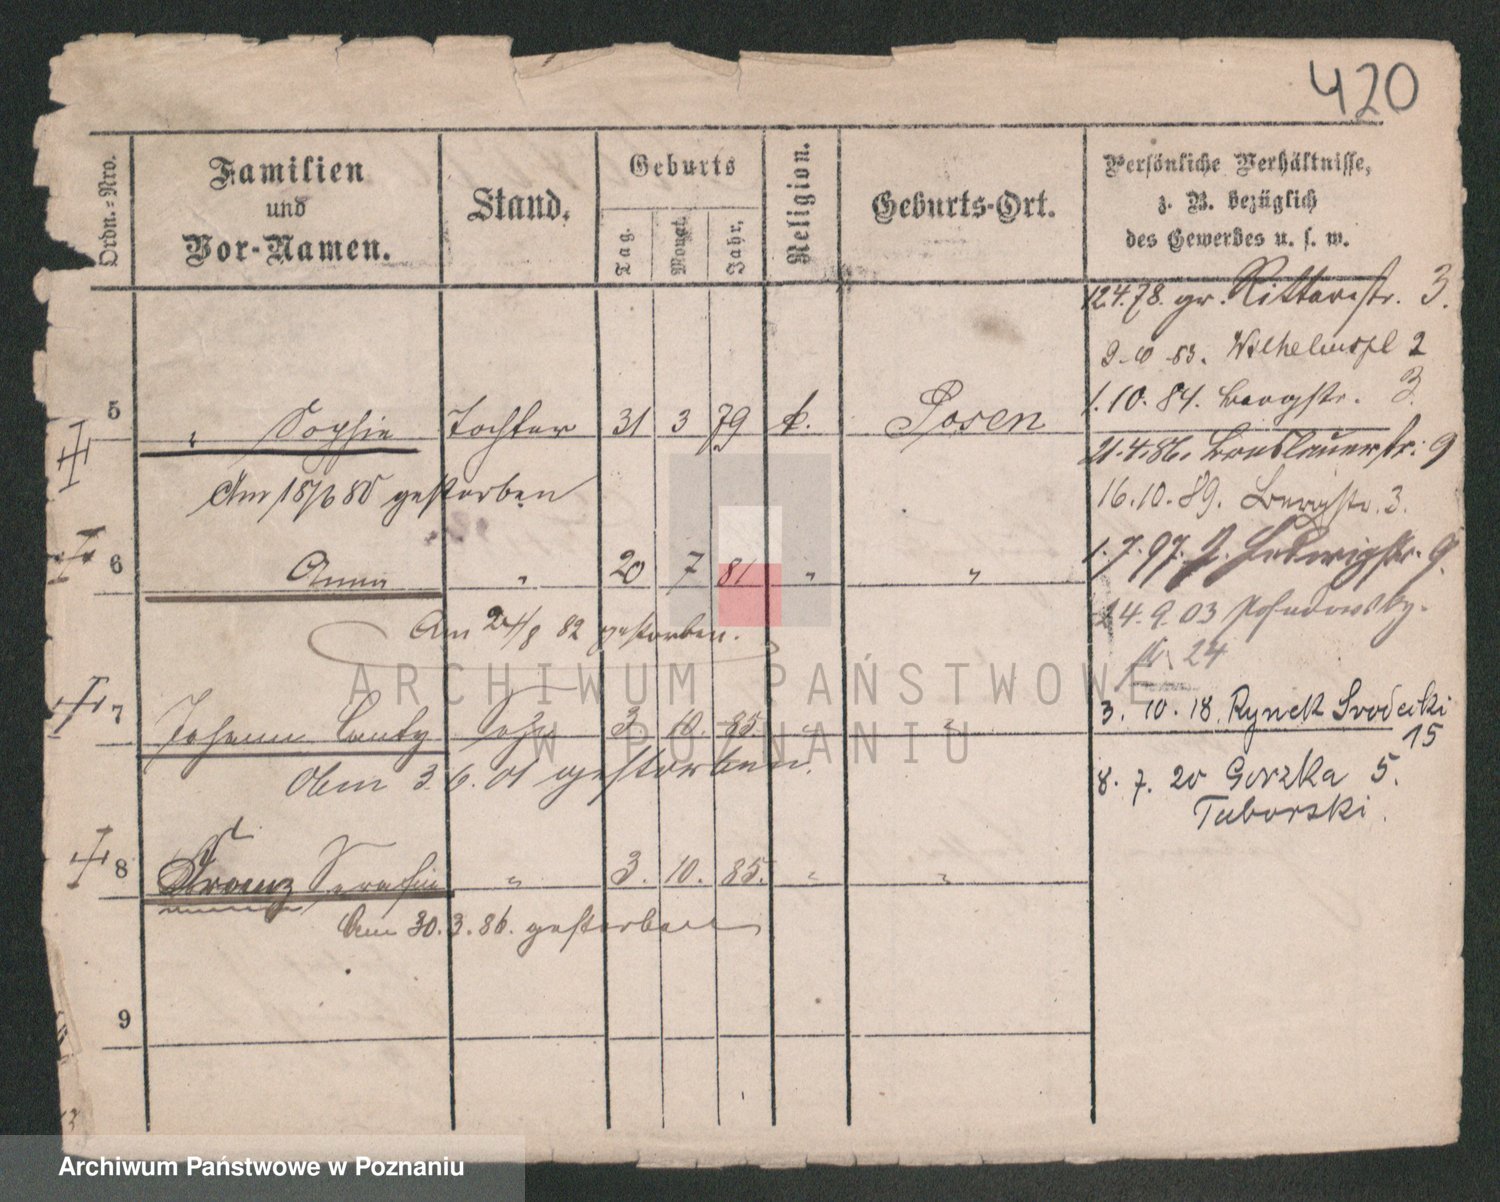 420
Ordn.-Nro.
Familien
und
Vor-Namen.
Stand.
Geburts
Tag.
Monat.
Jahr.
Religion.
Geburts-Ort.
Persönliche Verhältnisse,
z. B. bezüglich
des Gewerbes u. s. w.
12.4.78. gr. Ritterstr. 3.
2.10.83. Wilhelmspl 2
1.10.84. Bergstr. 3.
5 " Sophie Tochter 31 3 79 k. Posen
21.4.86. Breslauerstr. 9
Am 18/6 80 gestorben
16.10.89. Bergstr. 3.
1.7.97. Hedwigstr. 9.
6 Anna " 20 7 81 " "
24.9.03 Posadowsky-
Am 24/8 82 gestorben.
24
7 Johann Canty Sohn 3. 10. 85. " "
3. 10. 18. Rynek Srodecki
15
Am 3.6.01 gestorben.
8. 7. 20 Gorzka 5.
Taborski.
8 Franz Serafin " 3. 10. 85. " "
Am 30.3.86. gestorben
9
ARCHIWUM PAŃSTWOWE
W POZNANIU
Archiwum Państwowe w Poznaniu